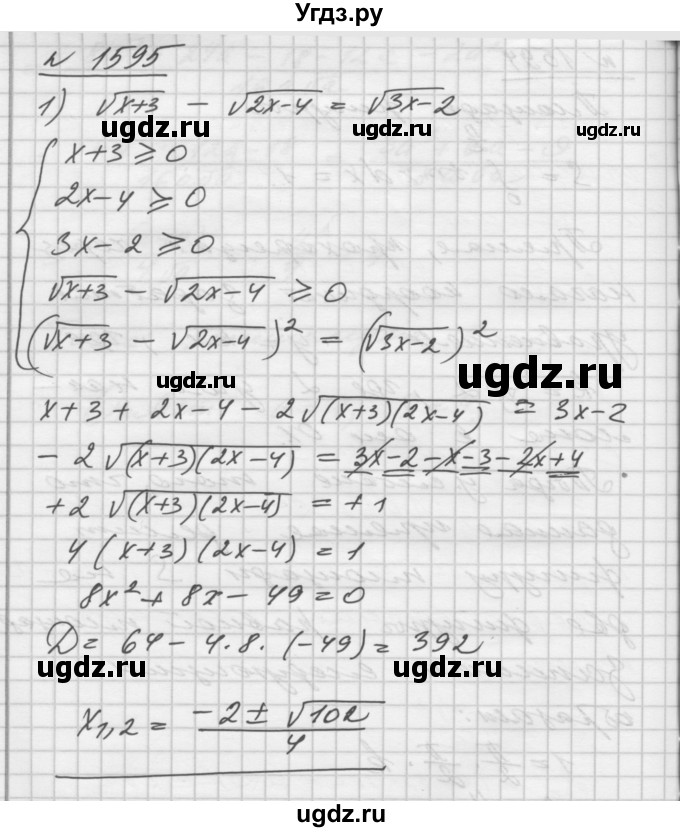 Угдз.ру
№ 1595
1) √(x+3) − √(2x−4) = √(3x−2)
ugdz.ru ugdz.ru ugdz.ru
x+3 ⩾ 0
2x−4 ⩾ 0
3x−2 ⩾ 0
√(x+3) − √(2x−4) ⩾ 0
(√(x+3) − √(2x−4))² = (√(3x−2))²
ugdz.ru ugdz.ru
x+3 + 2x−4 − 2√((x+3)(2x−4)) = 3x−2
− 2√((x+3)(2x−4)) = 3x−2−x−3−2x+4
ugdz.ru
+2√((x+3)(2x−4)) = +1
4(x+3)(2x−4) = 1
ugdz.ru
8x² + 8x − 49 = 0
D = 64 − 4·8·(−49) = 392
ugdz.ru ugdz.ru
x₁,₂ = (−2 ± √102)/4
ugdz.ru
ugdz.ru